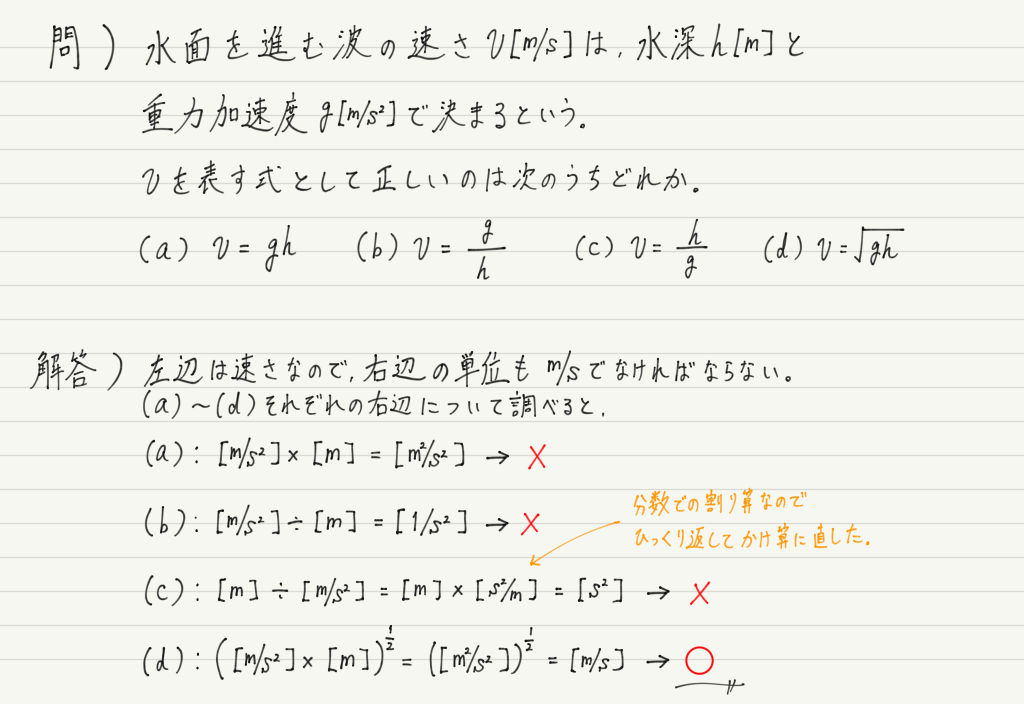 問) 水面を進む波の速さ v[m/s]は, 水深h[m]と
重力加速度 g[m/s²]で決まるという。
vを表す式として正しいのは次のうちどれか。
(a) v = gh (b) v = g/h (c) v = h/g (d) v = √gh
解答) 左辺は速さなので, 右辺の単位も m/sでなければならない。
(a)~(d)それぞれの右辺について調べると,
(a): [m/s²] × [m] = [m²/s²] → ×
(b): [m/s²] ÷ [m] = [1/s²] → ×
分数での割り算なので
ひっくり返してかけ算に直した。
(c): [m] ÷ [m/s²] = [m] × [s²/m] = [s²] → ×
(d): ([m/s²] × [m])^(1/2) = ([m²/s²])^(1/2) = [m/s] → ○